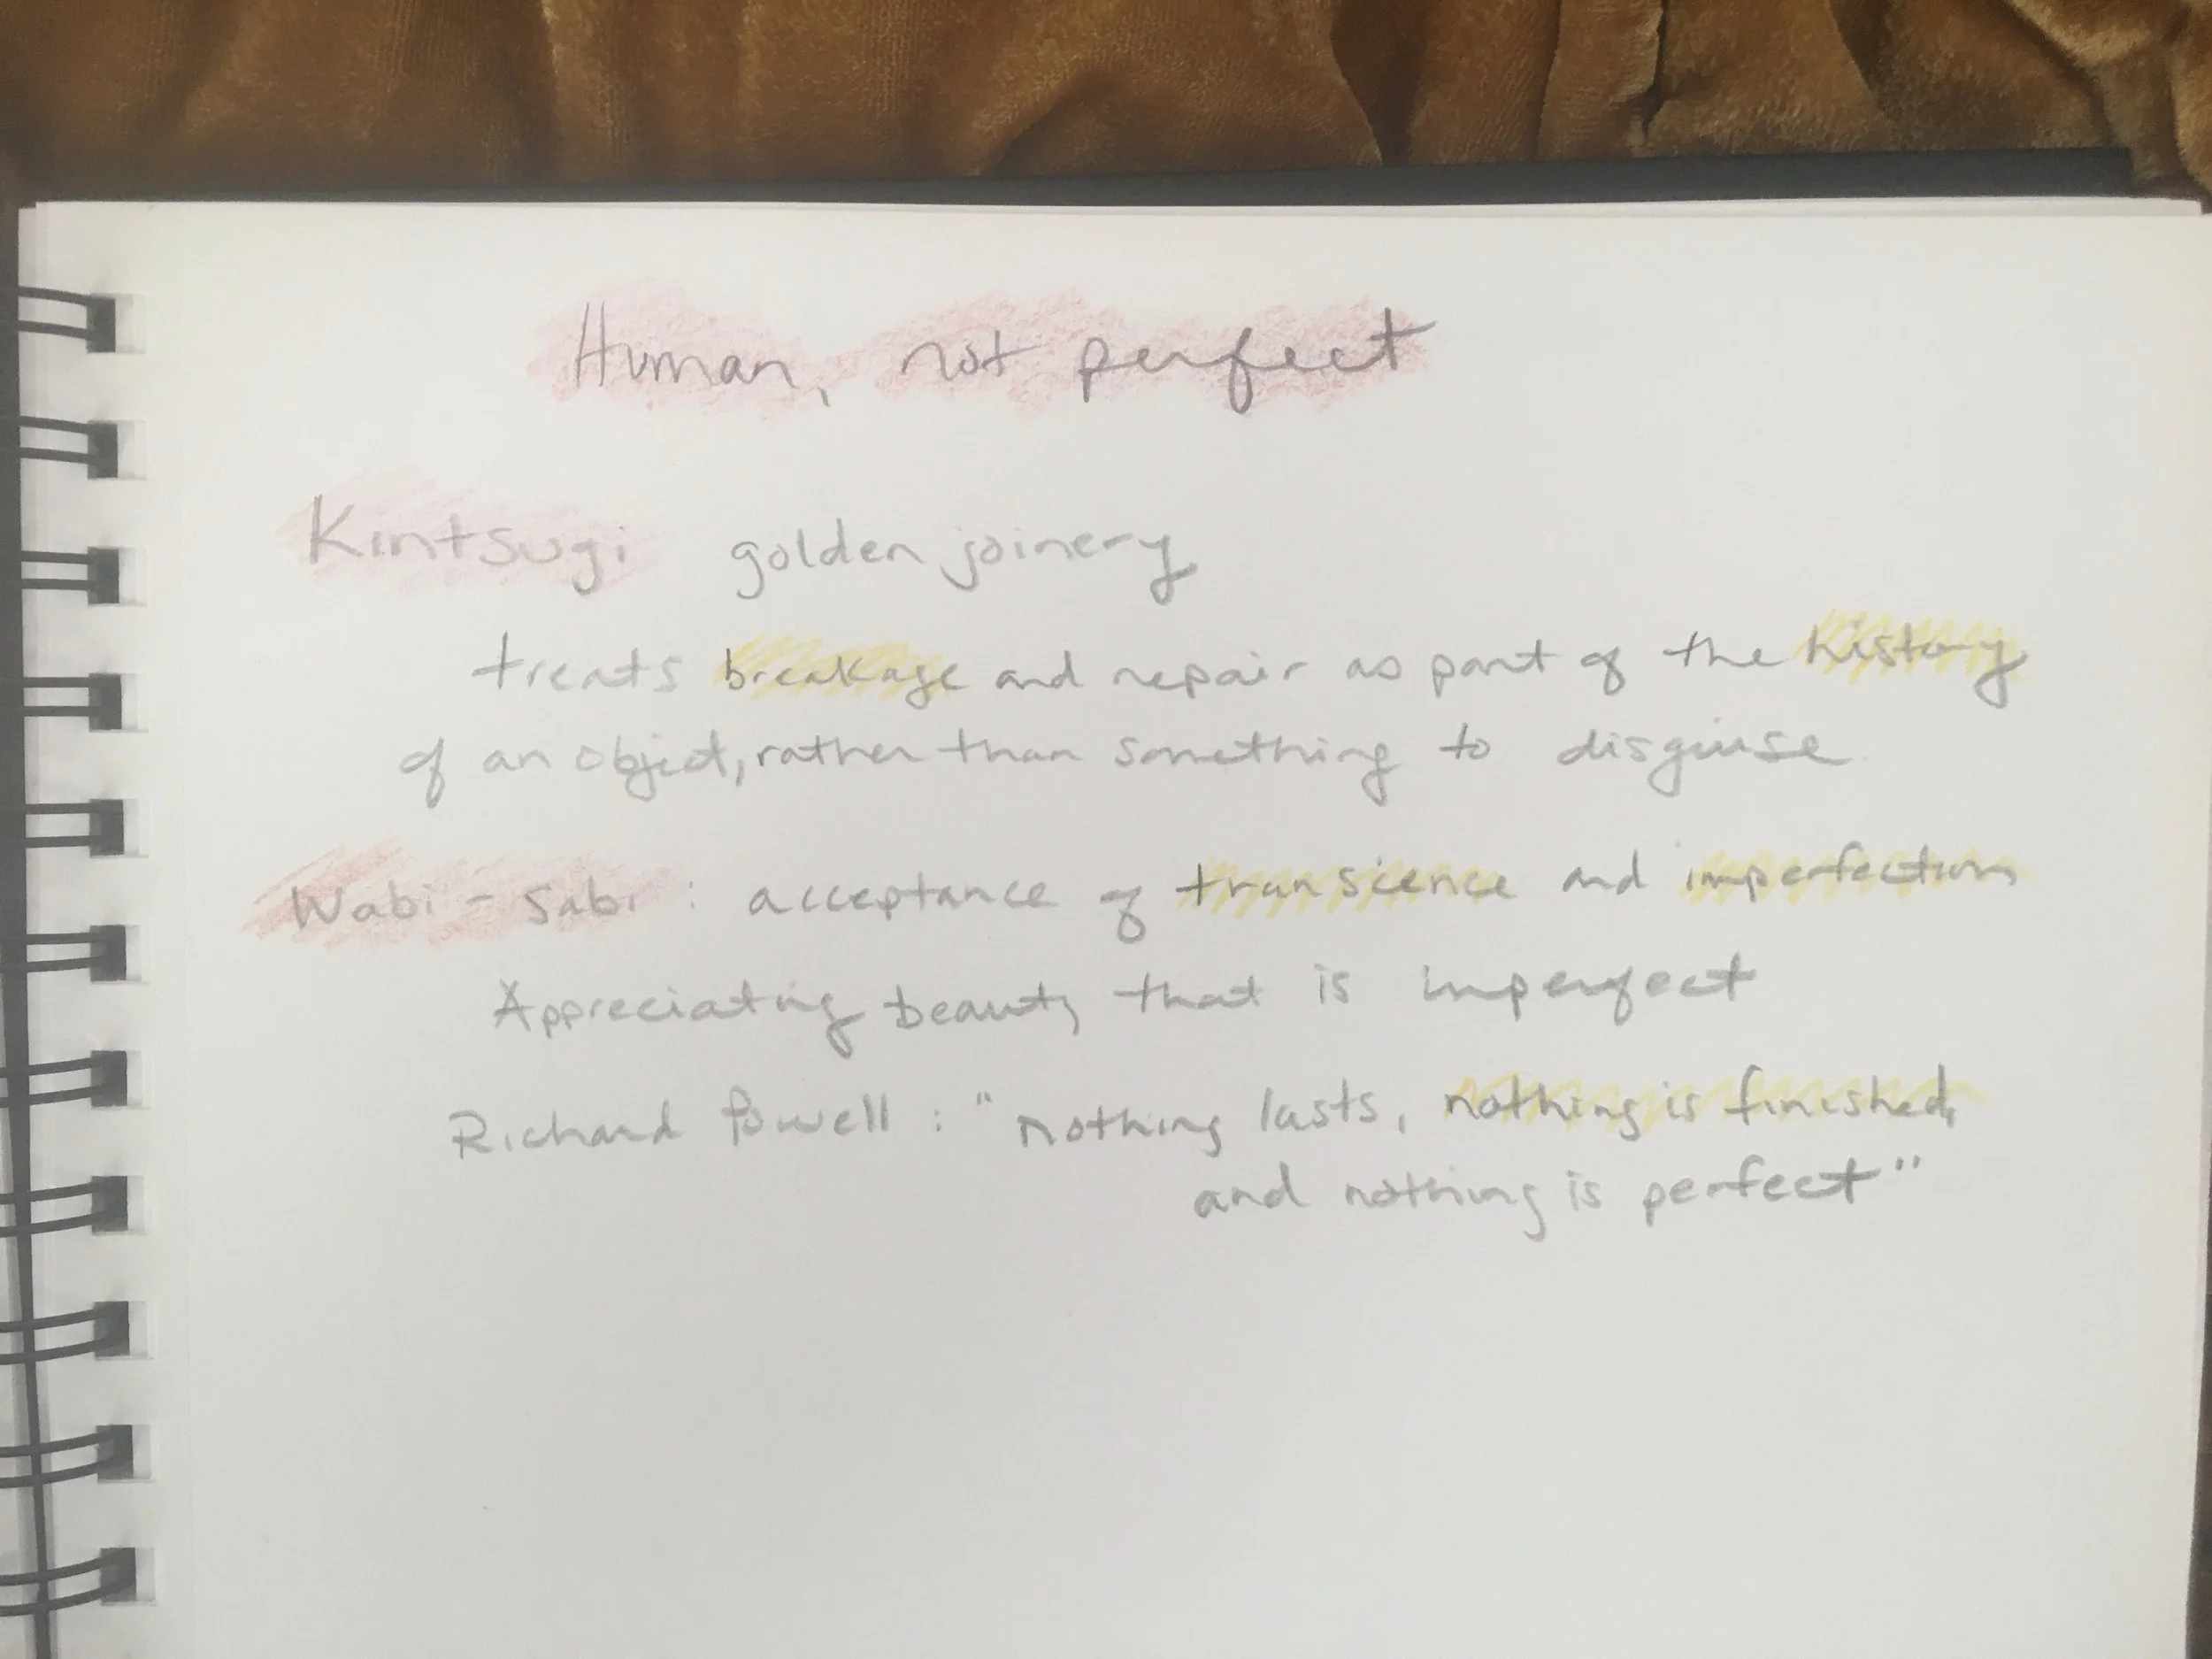 Human, not perfect
Kintsugi golden joinery
treats breakage and repair as part of the history
of an object, rather than something to disguise.
Wabi - Sabi : acceptance of transcience and imperfection
Appreciating beauty that is imperfect
Richard Powell : "nothing lasts, nothing is finished,
and nothing is perfect"